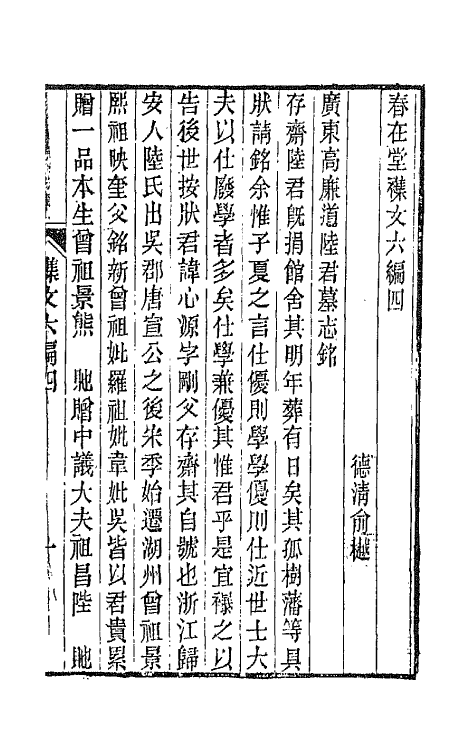 春在堂襍文六編四
德淸俞樾
廣東高廉道陸君墓志銘
存齋陸君旣捐館舍其明年葬有日矣其孤樹藩等具
狀請銘余惟子夏之言仕優則學學優則仕近世士大
夫以仕廢學者多矣仕學兼優其惟君乎是宜襮之以
告後世按狀君諱心源字剛父存齋其自號也浙江歸
安人陸氏出吳郡唐宣公之後宋季始遷湖州曾祖景
熙祖映奎父銘新曾祖妣羅祖妣韋妣吳皆以君貴累
贈一品本生曾祖景熊　貤贈中議大夫祖昌陛　貤
襍文六編四
一